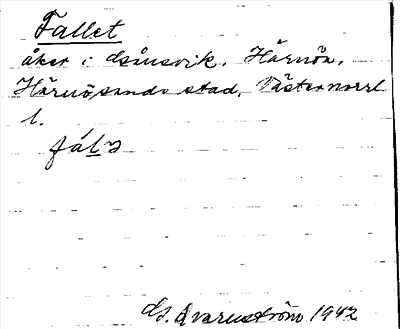 Fallet
åker i Gånsvik, Härnön,
Härnösands stad, Västernorrl
l.
fálɜ
G. Qvarnström 1942